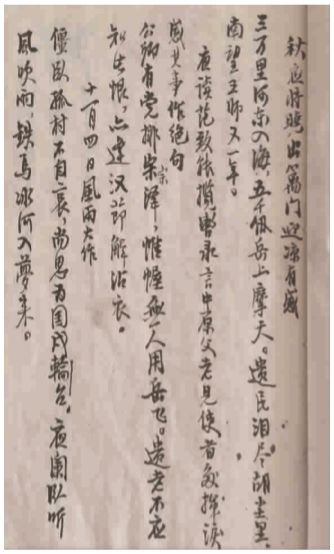 秋夜将晓出篱门迎凉有感
三万里河东入海，五千仞岳上摩天。遗民泪尽胡尘里，
南望王师又一年。
夜读范致能揽辔录言中原父老见使者多挥涕
感其事作绝句
公卿有党排宗泽，帷幄无人用岳飞。遗老不应
知此恨，亦逢汉节解沾衣。
十一月四日风雨大作
僵卧孤村不自哀，尚思为国戍轮台。夜阑卧听
风吹雨，铁马冰河入梦来。